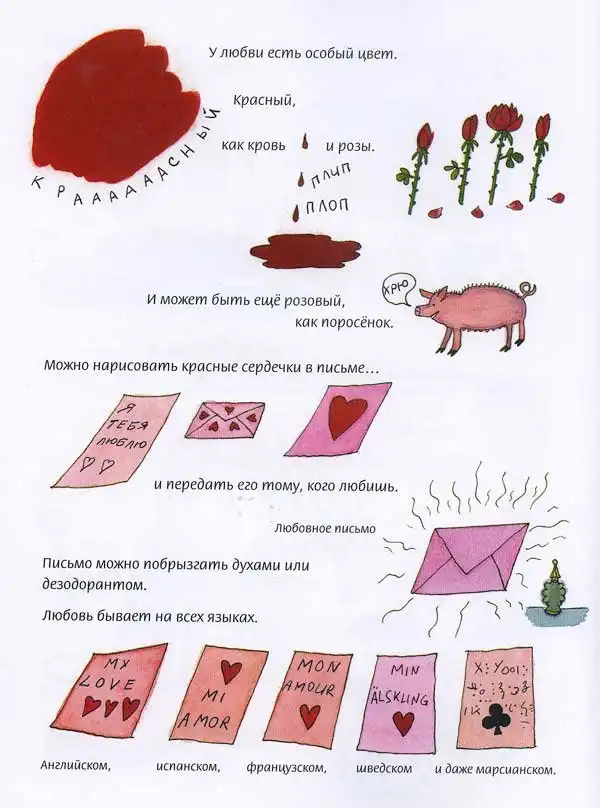 У любви есть особый цвет.
Красный,
КРАААААААСНЫЙ
как кровь и розы.
ПЛИП
ПЛОП
ХРЮ
И может быть ещё розовый,
как поросёнок.
Можно нарисовать красные сердечки в письме…
Я
ТЕБЯ
ЛЮБЛЮ
и передать его тому, кого любишь.
Любовное письмо
Письмо можно побрызгать духами или
дезодорантом.
Любовь бывает на всех языках.
MY
LOVE
MI
AMOR
MON
AMOUR
MIN
ÄLSKLING
Английском, испанском, французском, шведском и даже марсианском.